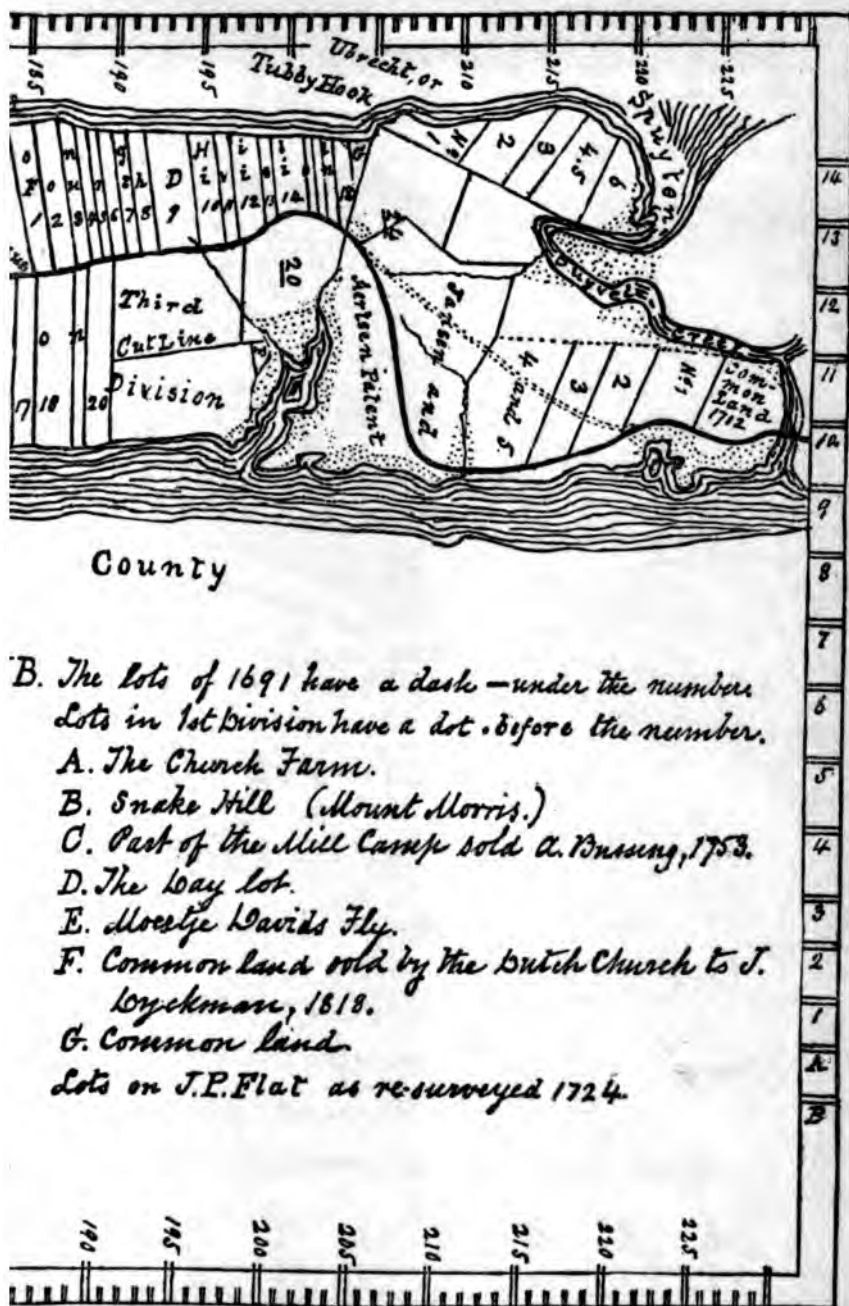 185 190 195 210 215 220 225
Ubrecht, or
Tubby Hook
Spuyten
Duyvil
Creek
No 1 2 3 4.5 6
F o u r t h D i v i s i o n
1 2 3 4 5 6 7 8 9 10 11 12 13 14
G
24
20
Third
CutLine
Division
17 18 20
o n
F
E
Aertsen Patent
Jansen and
4 and 5 3 2 No 1
Com-
mon
Land
1712
14
13
12
11
10
9
8
7
6
5
4
3
2
1
A
B
County
B. The lots of 1691 have a dash — under the number.
Lots in 1st Division have a dot . before the number.
A. The Church Farm.
B. Snake Hill (Mount Morris.)
C. Part of the Mill Camp sold A. Bussing, 1753.
D. The Day lot.
E. Moestje Davids Fly.
F. Common land sold by the Dutch Church to J.
Dyckman, 1818.
G. Common land.
Lots on J.P. Flat as re-surveyed 1724.
190 195 200 205 210 215 220 225